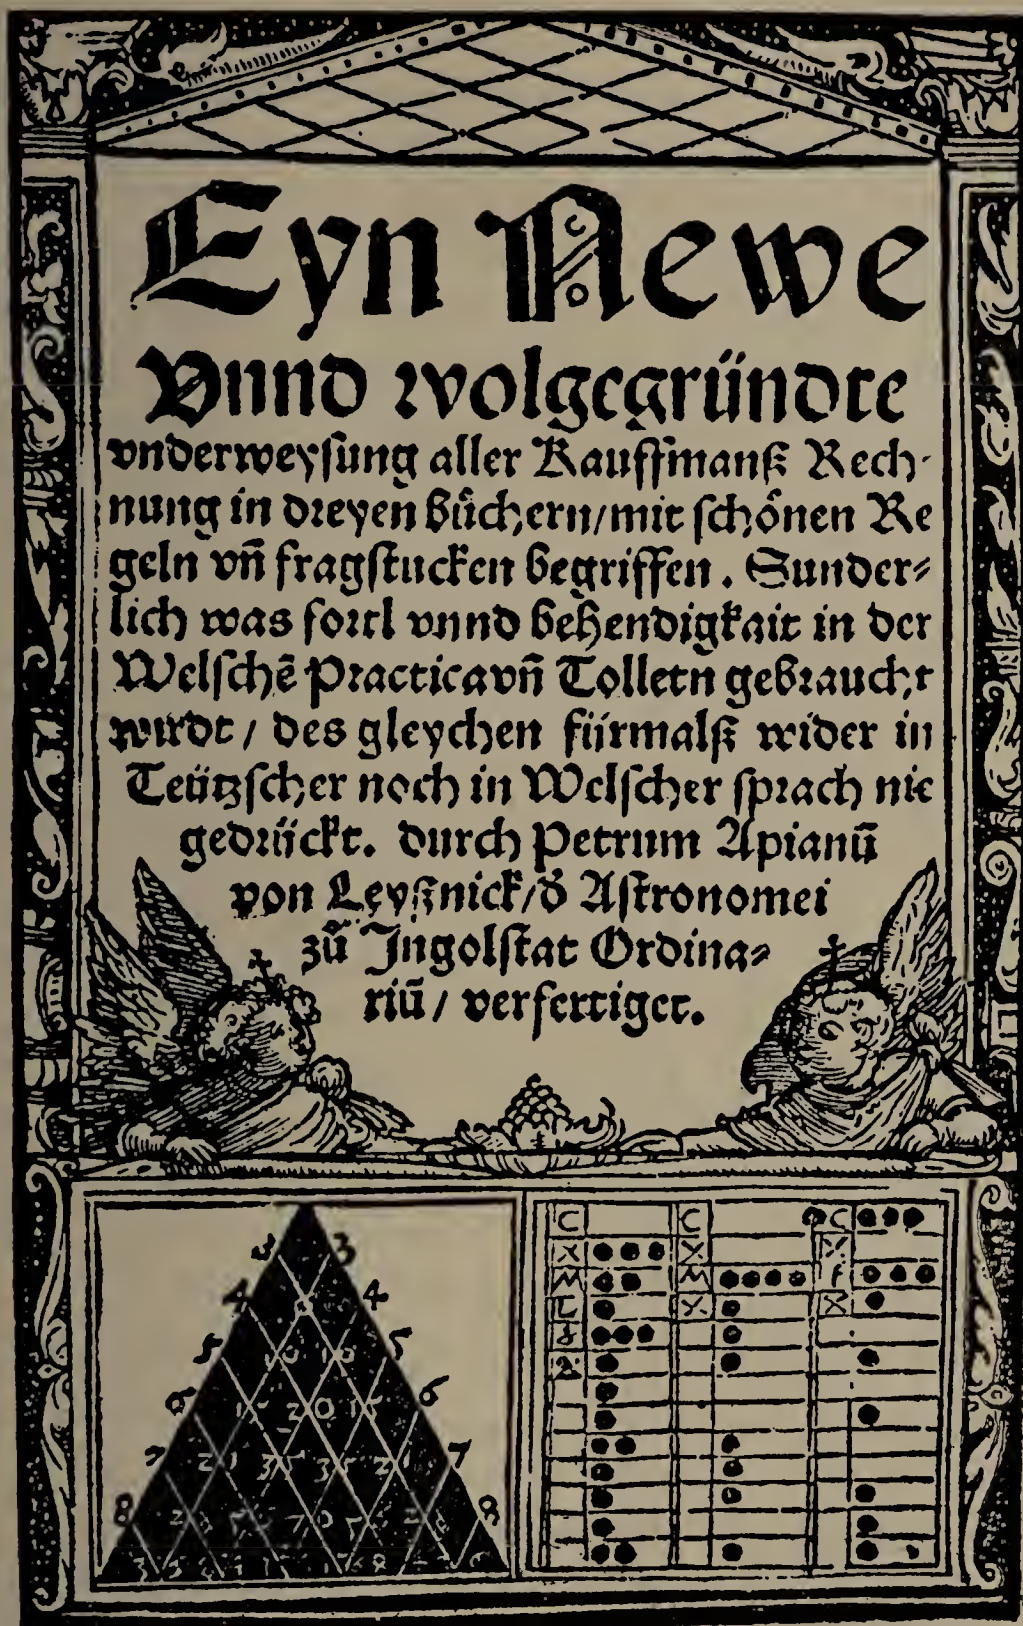 Eyn Newe
Vnnd wolgegründte
vnderweysung aller Kauffmanß Rech-
nung in dreyen Bůchern/mit schönen Re
geln vñ fragstucken begriffen. Sunder⸗
lich was fortl vnnd behendigkait in der
Welschē Practica vñ Tolletn gebraucht
wirdt / des gleychen fürmalß wider in
Teützscher noch in Welscher sprach nie
gedrückt. durch Petrum Apianū
von Leyßnick/d̄ Astronomei
zů Ingolstat Ordina⸗
riū / verfertiget.
3 3
4 4
5 10 10 5
6 15 20 15 6
7 21 35 35 21 7
8 8
C C C
X X X
M M
X X